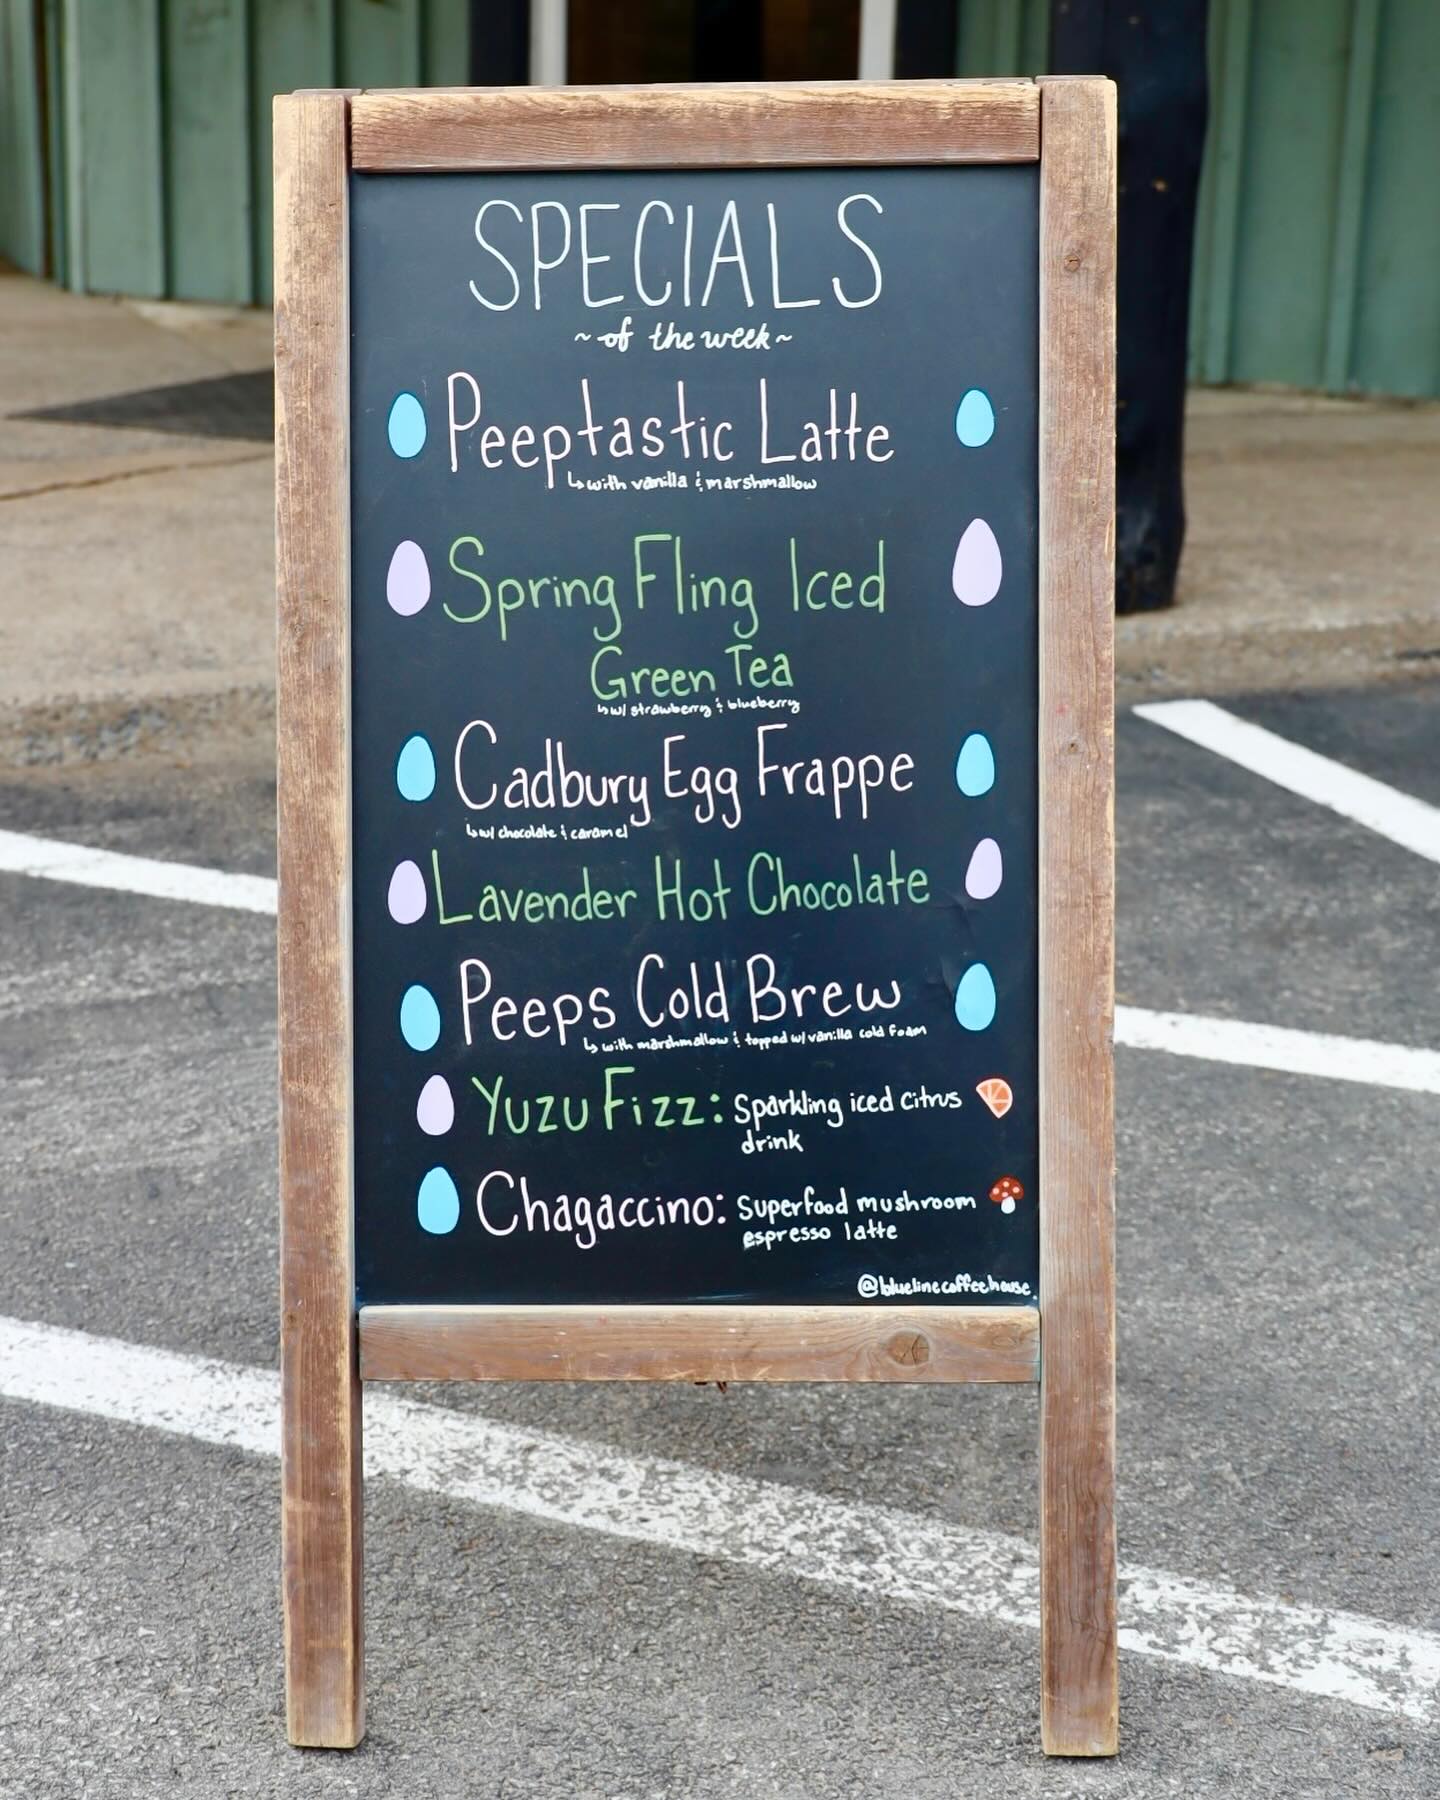 SPECIALS
~ of the week ~
Peeptastic Latte
↳ with vanilla & marshmallow
Spring Fling Iced
Green Tea
↳ w/ strawberry & blueberry
Cadbury Egg Frappe
↳ w/ chocolate & caramel
Lavender Hot Chocolate
Peeps Cold Brew
↳ with marshmallow & topped w/ vanilla cold foam
Yuzu Fizz: Sparkling iced citrus
drink
Chagaccino: Superfood mushroom
espresso latte
@bluelinecoffeehouse